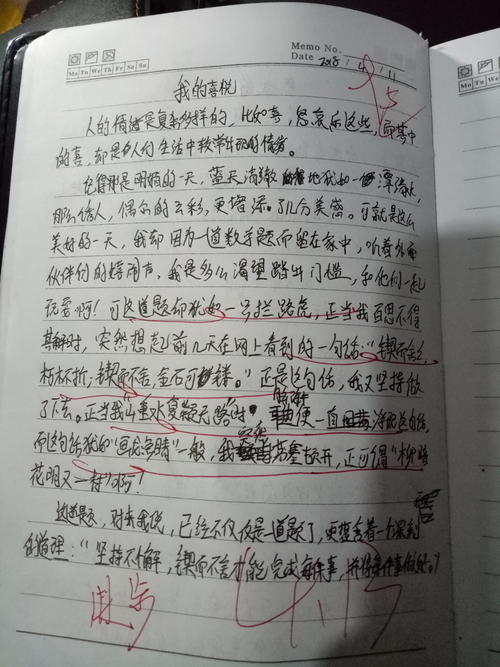 Memo No.
Mo Tu We Th Fr Sa Su
Date 2018 / 4 / 11
我的喜悦
人的情绪是复杂多样的，比如喜，怒哀乐这些，而其中
的喜，却是人们生活中较常出现的情绪。
记得那是明媚的一天，蓝天清澈地犹如一潭清水，
那么信人，偶尔的云彩，更增添了几分美感。可就是这么
美好的一天，我却因为一道数学题而留在家中，听着外面
伙伴们的嬉闹声，我是多么渴望踏出门槛，和他们一起
玩耍啊！可这道题却犹如一号拦路虎，正当我百思不得
其解时，突然想起前几天在网上看到的一句话："锲而舍之，
朽木不折，锲而不舍，金石可镂。"正是这句话，我又坚持做
了下去。正当我"山重水复疑无路"时，脑海便一直回荡这句话，
而这句话犹如"画龙点睛"一般，我茅塞顿开，正可谓"柳暗
花明又一村"啊！
这道题，对我来说，已经不仅仅是一道题了，更蕴含着一个深刻
的道理："坚持不懈，锲而不舍才能完成每件事，并将每件事做好。"